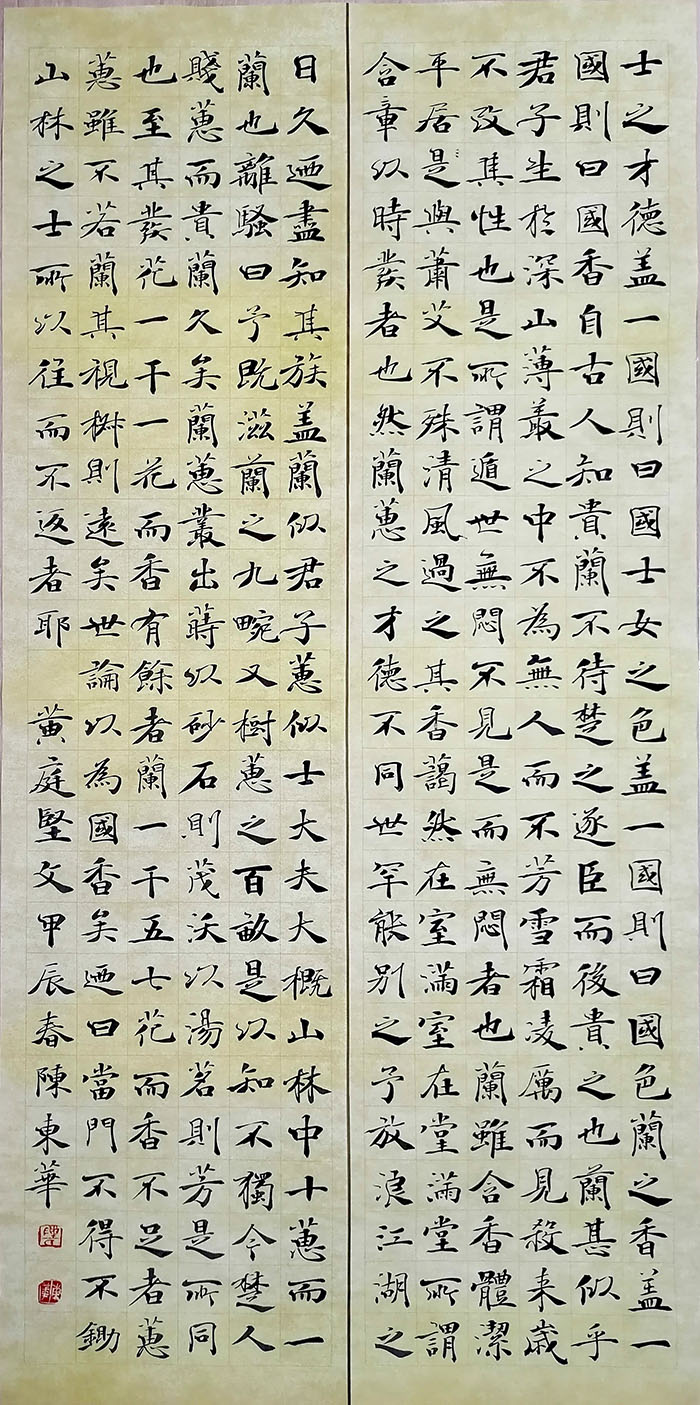 士之才德盖一國則曰國士女之色盖一國則曰國色蘭之香盖一
國則曰國香自古人知貴蘭不待楚之逐臣而後貴之也蘭甚似乎
君子生扵深山薄叢之中不為無人而不芳雪霜凌厲而見殺来歲
不改其性也是所謂遁世無悶不見是而無悶者也蘭雖含香體潔
平居是與蕭艾不殊清風過之其香藹然在室滿室在堂滿堂所謂
含章以時發者也然蘭蕙之才德不同世罕能別之予放浪江湖之
日久迺盡知其族盖蘭似君子蕙似士大夫大概山林中十蕙而一
蘭也離騷曰予既滋蘭之九畹又樹蕙之百畝是以知不獨今楚人
賤蕙而貴蘭久矣蘭蕙叢出蒔以砂石則茂沃以湯茗則芳是所同
也至其發花一干一花而香有餘者蘭一干五七花而香不足者蕙
蕙雖不若蘭其視椒則遠矣世論以為國香矣迺曰當門不得不鋤
山林之士所以往而不返者耶 黄庭堅文甲辰春陳東華